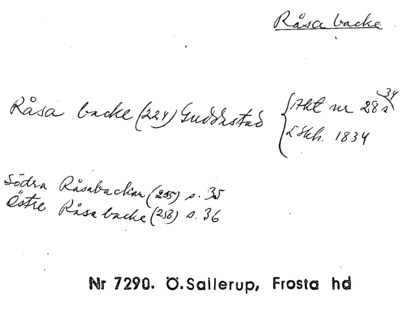 Råsa backe
34
Råsa backe (224) Guddastad { Akt nr 28a
L Skh. 1834
Södra Råsabackar (255) s. 35
Östre Råsabacke (258) s. 36
Nr 7290. Ö.Sallerup, Frosta hd